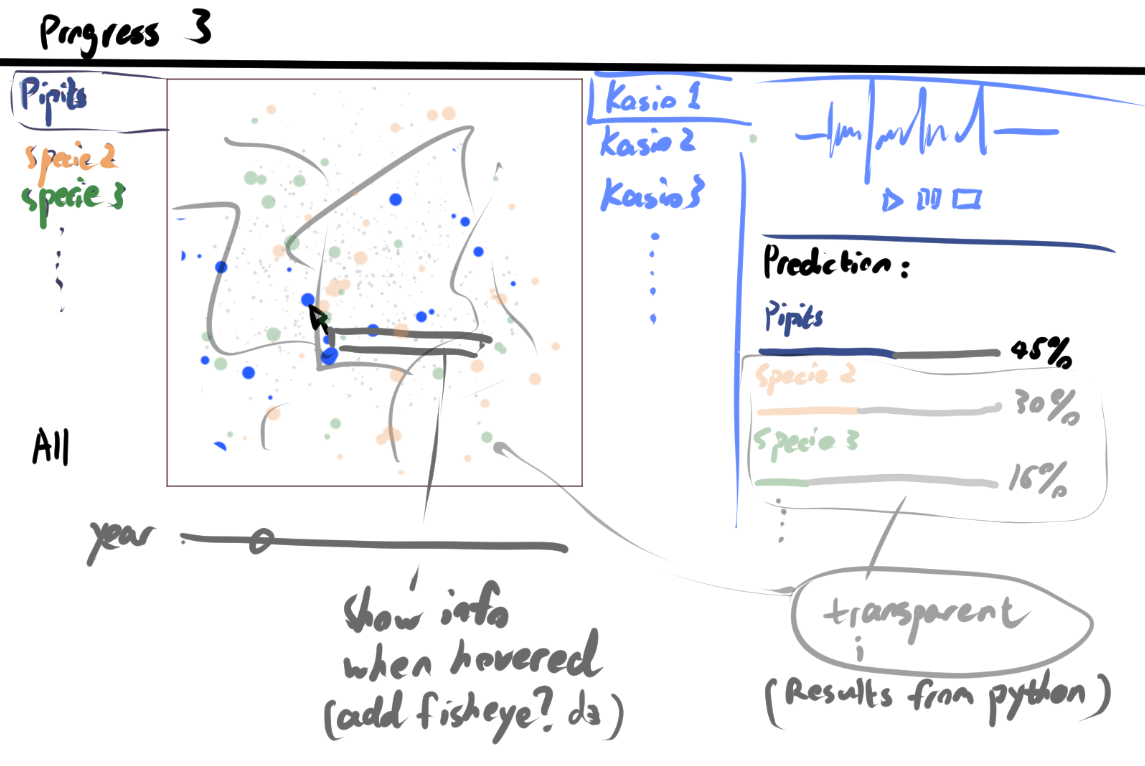 Progress 3
Pipits
Specie 2
Specie 3
All
year
Show info
when hovered
(add fisheye? d3)
Kasio 1
Kasio 2
Kasio 3
Prediction:
Pipits
45%
Specie 2
30%
Specie 3
16%
transparent
(Results from python)